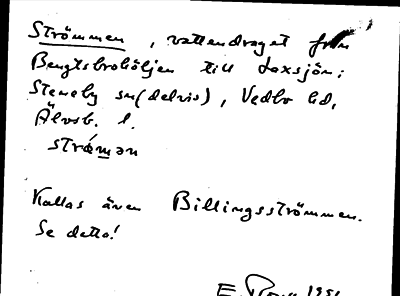 Strömmen, vattendraget från
Bengtsbrohöljen till Laxsjön;
Steneby sn (delvis), Vedbo hd,
Älvsb. l.
strǿmən
Kallas även Billingsströmmen.
Se detta!
E.